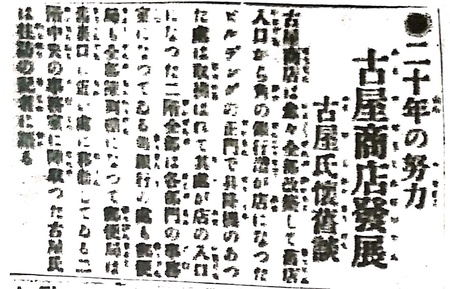 ●二十年の努力
古屋商店發展
古屋氏懷舊談
古屋商店は愈々全部改築して商店
入口から角の銀行迄が店になつた
ビルデングの正門で昇降機のあつ
た處は取拂はれて其處が店の入口
になつた二階全部は各部門の事務
室になつてゐる當銀行の處も郵便
局も全部 になつて郵便局は
北東口に近い處に移轉してゐる二
階中央の事務室に陣取つた古屋氏
は往訪の記者に語る